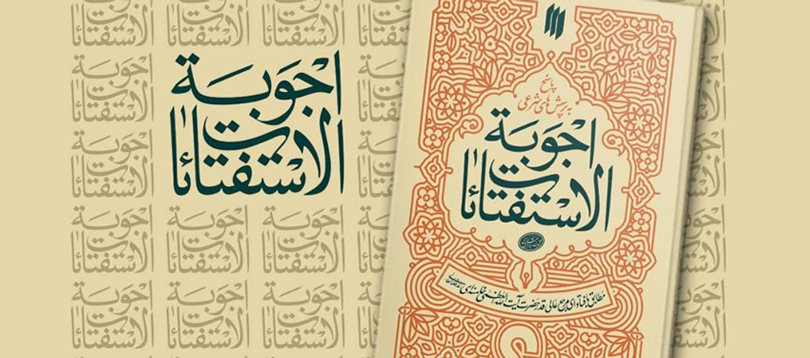 اجوبة
الاستفتائات
پاسخ
به پرسش‌های شرعی
اجوبة
الاستفتائات
مطابق با فتاوای مرجع عالی‌قدر حضرت آیت‌الله العظمی خامنه‌ای